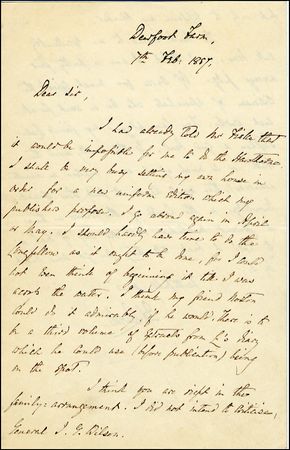 Deerfoot Farm,
7th Feb: 1887.
Dear Sir,
I had already told Mr that
it would be impossible for me to do the
I shall be very busy setting my own house in
order for a new uniform edition which my
publishers propose. I go abroad again in April
or May. I should hardly have time to do the
Longfellow as it ought to be done, for I could
not even think of beginning it till I was
across the water. I think my friend
could do it admirably, if he would. There is to
be a third volume of extracts from L's diary
which he could use (before publication) being
on the spot.
I think you are right in the
family: arrangement. I did not intend to criticise
General J. G. Wilson.